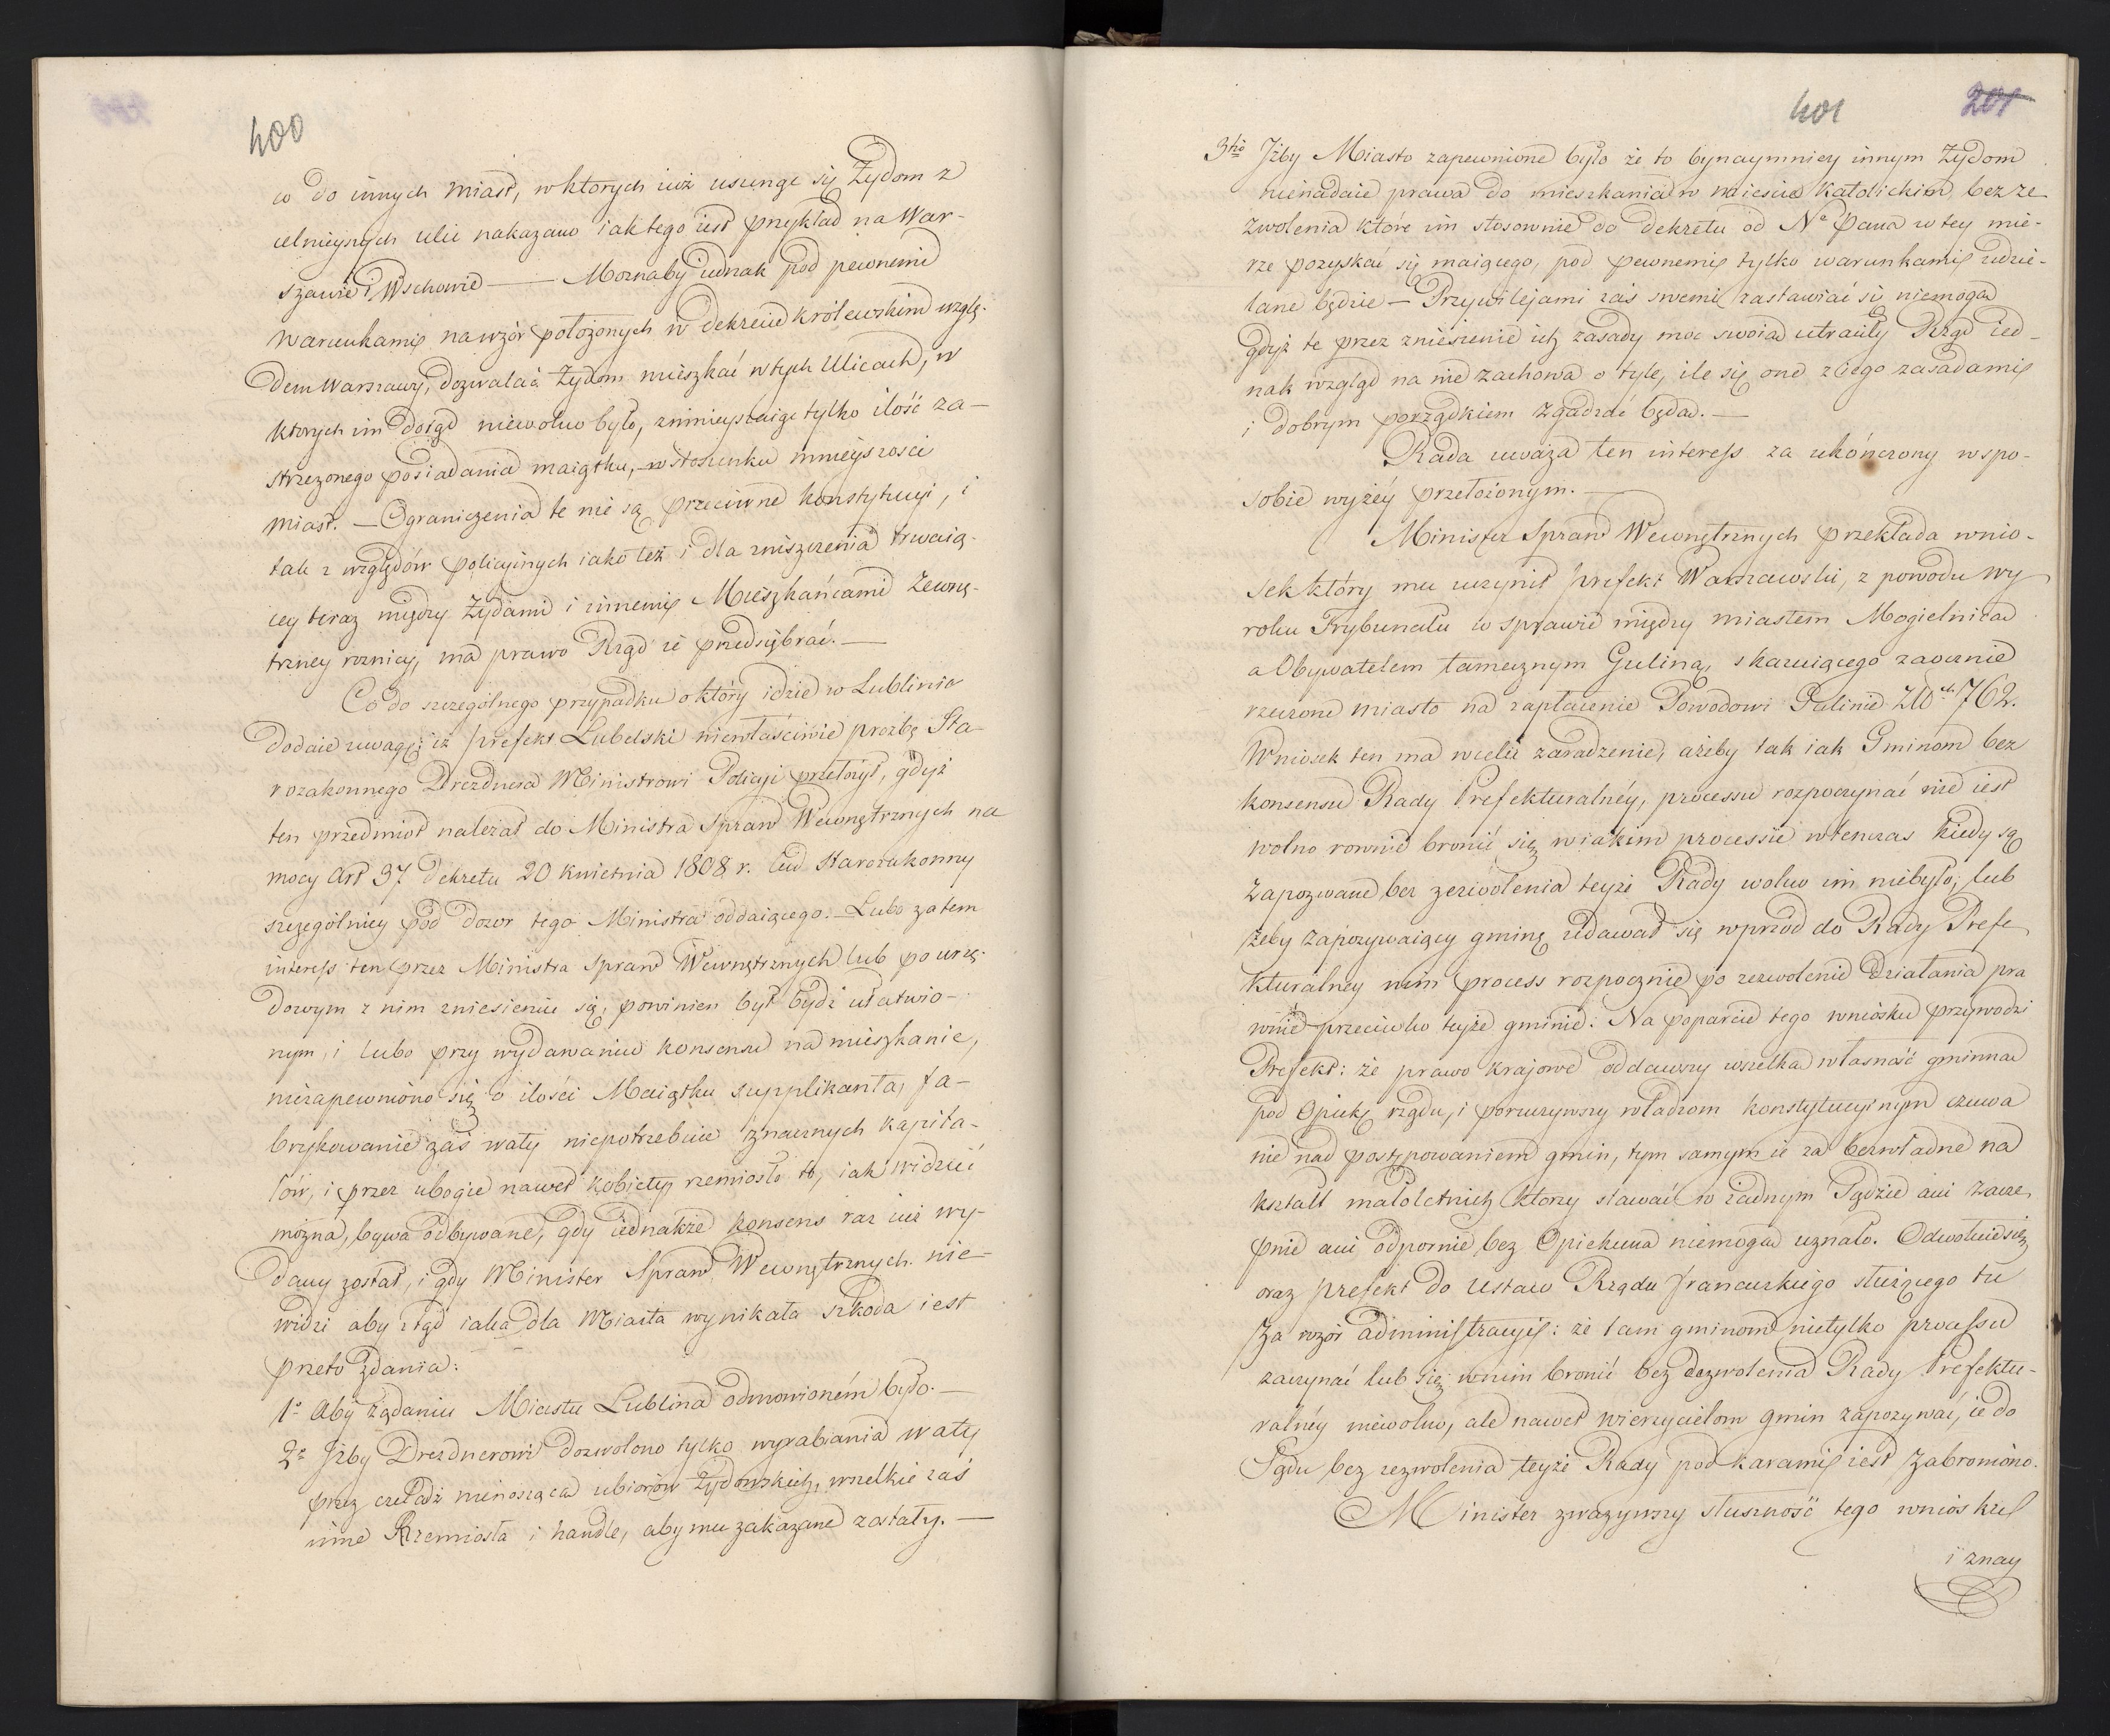 400
co do innych miast, w ktorych iuż usunąć się Żydom z
celnieyszych ulic nakazano iak tego iest przykład na War-
szawie i Wschowie — Moznaby iednak pod pewnemi
warunkami na wzór położonych w dekrecie królewskim wzglę-
dem Warszawy, dozwalać Żydom mieszkać w tych Ulicach, w
ktorych im dotąd niewolno było, zmnieyszaiąc tylko ilość za-
strzeżonego posiadania maiątku, w stosunku mnieyszosci
miast. — Ograniczenia te nie są przeciwne konstytucyi, i
tak z względów policyinych iako też i dla zniszczenia trwaią-
cey teraz między Żydami i innemi Mieszkańcami zewnę-
trzney roznicy, ma prawo Rząd ie przedsiębrać. —
Co do szczególnego przypadku o który idzie w Lublinie
dodaie uwagę; iż Prefekt Lubelski niewłaściwie prozbę Sta-
rozakonnego Drezdnera Ministrowi Policyi przełożył, gdyż
ten przedmiot należał do Ministra Spraw Wewnętrznych na
mocy Art 37 dekretu 20 kwietnia 1808 r. lud Starozakonny
szczególniey pod dozor tego Ministra oddaiącego. — Lubo zatem
interess ten przez Ministra Spraw Wewnętrznych lub po urzę-
dowym z nim zniesieniu się, powinien był bydź ułatwio-
nym, i lubo przy wydawaniu konsensu na mieszkanie,
niezapewniono się o ilości Maiątku supplikanta, fa-
brykowanie zaś waty niepotrzebuie znacznych kapita-
łów, i przez ubogie nawet kobiety rzemiosło to, iak widzieć
można, bywa odbywane, gdy iednakże konsens raz iuż wy-
dany został, i gdy Minister Spraw Wewnętrznych nie-
widzi aby ztąd iaka dla Miasta wynikała szkoda iest
przeto zdania:
1° Aby żądaniu Miasta Lublina odmowioném było. —
2° Jżby Drezdnerowi dozwolono tylko wyrabiania waty
przez czeladź nienoszącą ubiorów Żydowskich, wszelkie zaś
inne Rzemiosła i handle, aby mu zakazane zostały. —
401 201
3tio Jżby Miasto zapewnione było że to bynaymniey innym Żydom
nienadaie prawa do mieszkania w mieście katolickim, bez ze-
zwolenia które im stosownie do dekretu od Nº Pana w tey mie-
rze pozyskać się maiącego, pod pewnemi tylko warunkami udzie-
lane będzie — Przywilejami zaś swemi zastawiać się niemogą
gdyż te przez zniesienie ich zasady moc swoią utraciły Rząd ied-
nak wzgląd na nie zachowa o tyle, ile się one z iego zasadami
i dobrym porządkiem zgadzać będą. —
Rada uważa ten interess za ukończony w spo-
sobie wyżéy przełożonym. —
Minister Spraw Wewnętrznych przekłada wnio-
sek który mu uczynił Prefekt Warszawski, z powodu wy
roku Trybunału w sprawie między miastem Mogielnicą
a Obywatelem tamecznym Guliną, skazuiącego zaocznie
rzeczone miasto na zapłacenie Powodowi Gulinie Złº 762.
Wniosek ten ma w celu zaradzenie, ażeby tak iak Gminom bez
konsensu Rady Prefekturalnéy, processu rozpoczynać nie iest
wolno rownie bronić się w iakim processie wtenczas kiedy są
zapozwane bez zezwolenia teyże Rady wolno im niebyło; lub
żeby zapozywaiący gminę udawał się wprzod do Rady Prefe
kturalney nim process rozpocznie po zezwolenie działania pra
wnie przeciwko teyże gminie: Na poparcie tego wniosku przywodzi
Prefekt: że prawo krajowe oddawszy wszelką własność gminną
pod Opiekę rządu, i poruczywszy władzom konstytucyinym czuwa
nie nad postępowaniem gmin, tym samym ie za bezwładne na
kształt małoletnich którzy stawać w żadnym Sądzie ani zacze,
pnie ani odpornie bez Opiekuna niemogą uznało. Odwołuie się
oraz prefekt do Ustaw Rządu francuzkiego służącego tu
za wzór administracyi: że tam gminom nietylko processu
zaczynać lub się w nim bronić bez zezwolenia Rady Prefektu-
ralnéy niewolno, ale nawet wierzycielom gmin zapozywać, ie do
Sądu bez zezwolenia teyże Rady pod karami iest zabroniono.
Minister zważywszy słuszność tego wniosku
i znay